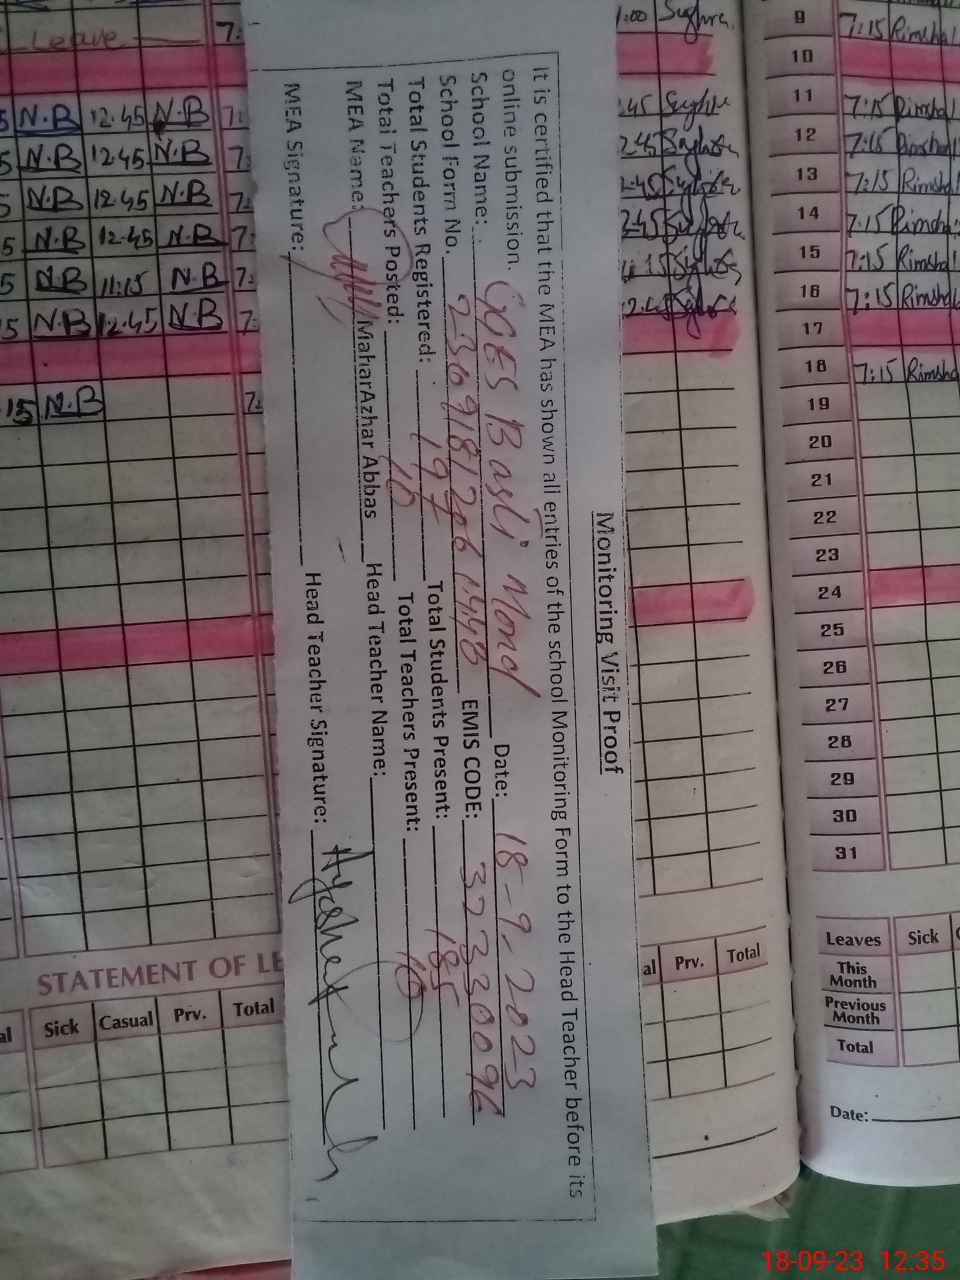 Monitoring Visit Proof
It is certified that the MEA has shown all entries of the school Monitoring Form to the Head Teacher before its
online submission.
School Name: GGES Basti Mond Date: 18-9-2023
School Form No. EMIS CODE:
Total Students Registered: 197 Total Students Present: 185
Total Teachers Posted: 10 Total Teachers Present: 10
MEA Name: MaharAzhar Abbas Head Teacher Name:
MEA Signature: Head Teacher Signature:
Leave 7:
N.B 12.45 N.B 7:
5 N.B 12.45 N.B 7:
5 N.B 12.45 N.B 7:
5 N.B 12.45 N.B 7:
5 N.B 11:15 N.B 7:
5 N.B 12.45 N.B 7:
15 N.B 7:
STATEMENT OF LE
Sick Casual Prv. Total
1:00 Sughra
al Prv. Total
9 7:15 Rimsha
10
11 7:15 Rimsha
12 7:15 Rimsha
13 7:15 Rimsha
14 7:15 Rimsha
15 7:15 Rimsha
16 7:15 Rimsha
17
18 7:15 Rimsha
19
20
21
22
23
24
25
26
27
28
29
30
31
Leaves Sick
This Month
Previous Month
Total
Date:
18-09-23 12:35